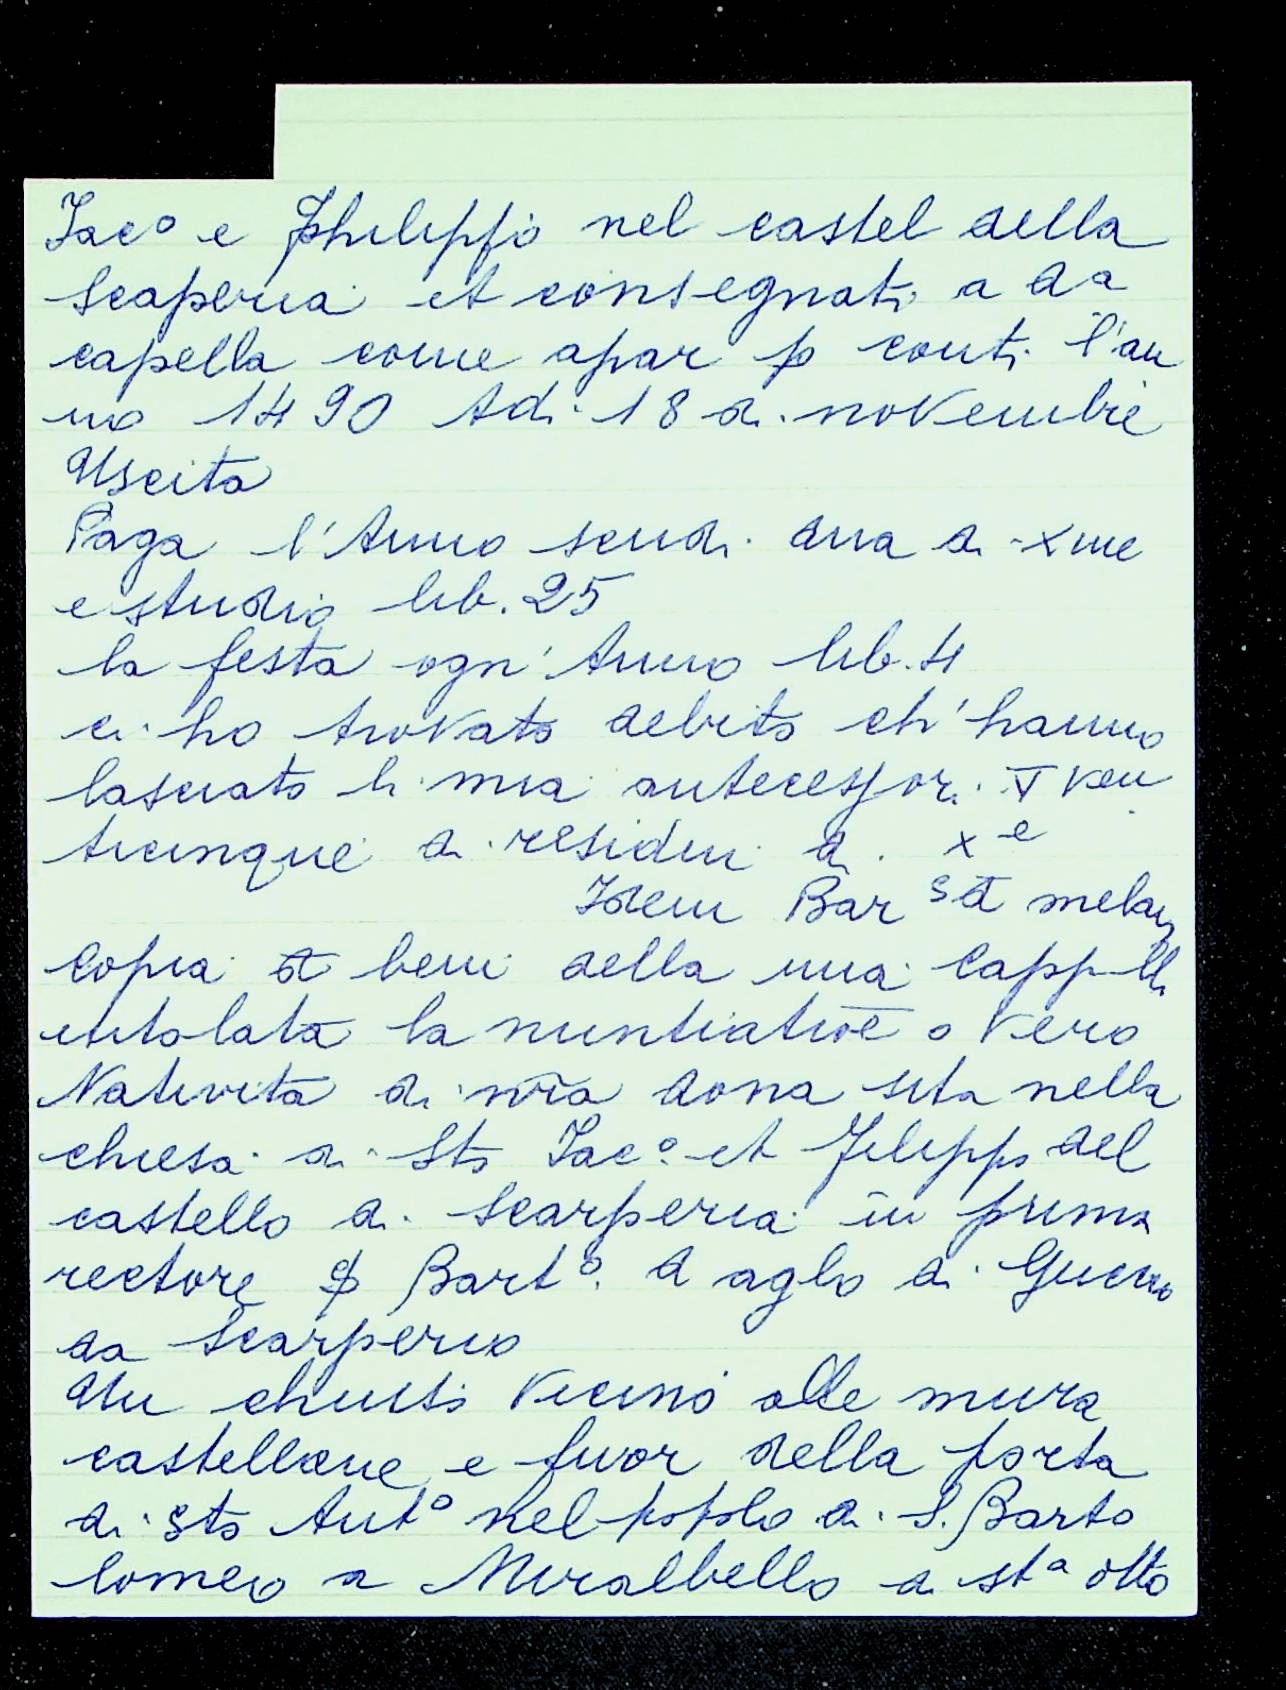 Jac° e Philippo nel castel della
Scaperia et consegnati a da
capella come apar p conti l'an
no 1490 Adi 18 di novembre
Uscita
Paga l'Anno scudi dua di xme
e studio lib. 25
la festa ogn'Anno lib. 4
ci ho trovato debito ch'hanno
lasciato li mia antecessori ∇ ven
ticinque di residui di xᵉ
Idem Bar
Copia di beni della mia Capp
intolata la nuntiatiōē o vero
Natività di nr̄a dona sita nella
chiesa di Sto Jac° et Filippo del
castello di Scarperia in prima
rectore Bart°. d aglo di Guccio
da Scarperia
Un chiuso vicino alle mura
castellane e fuor della porta
di Sto Ant° nel popolo di S. Barto
lomeo a Miralbello di sta otto